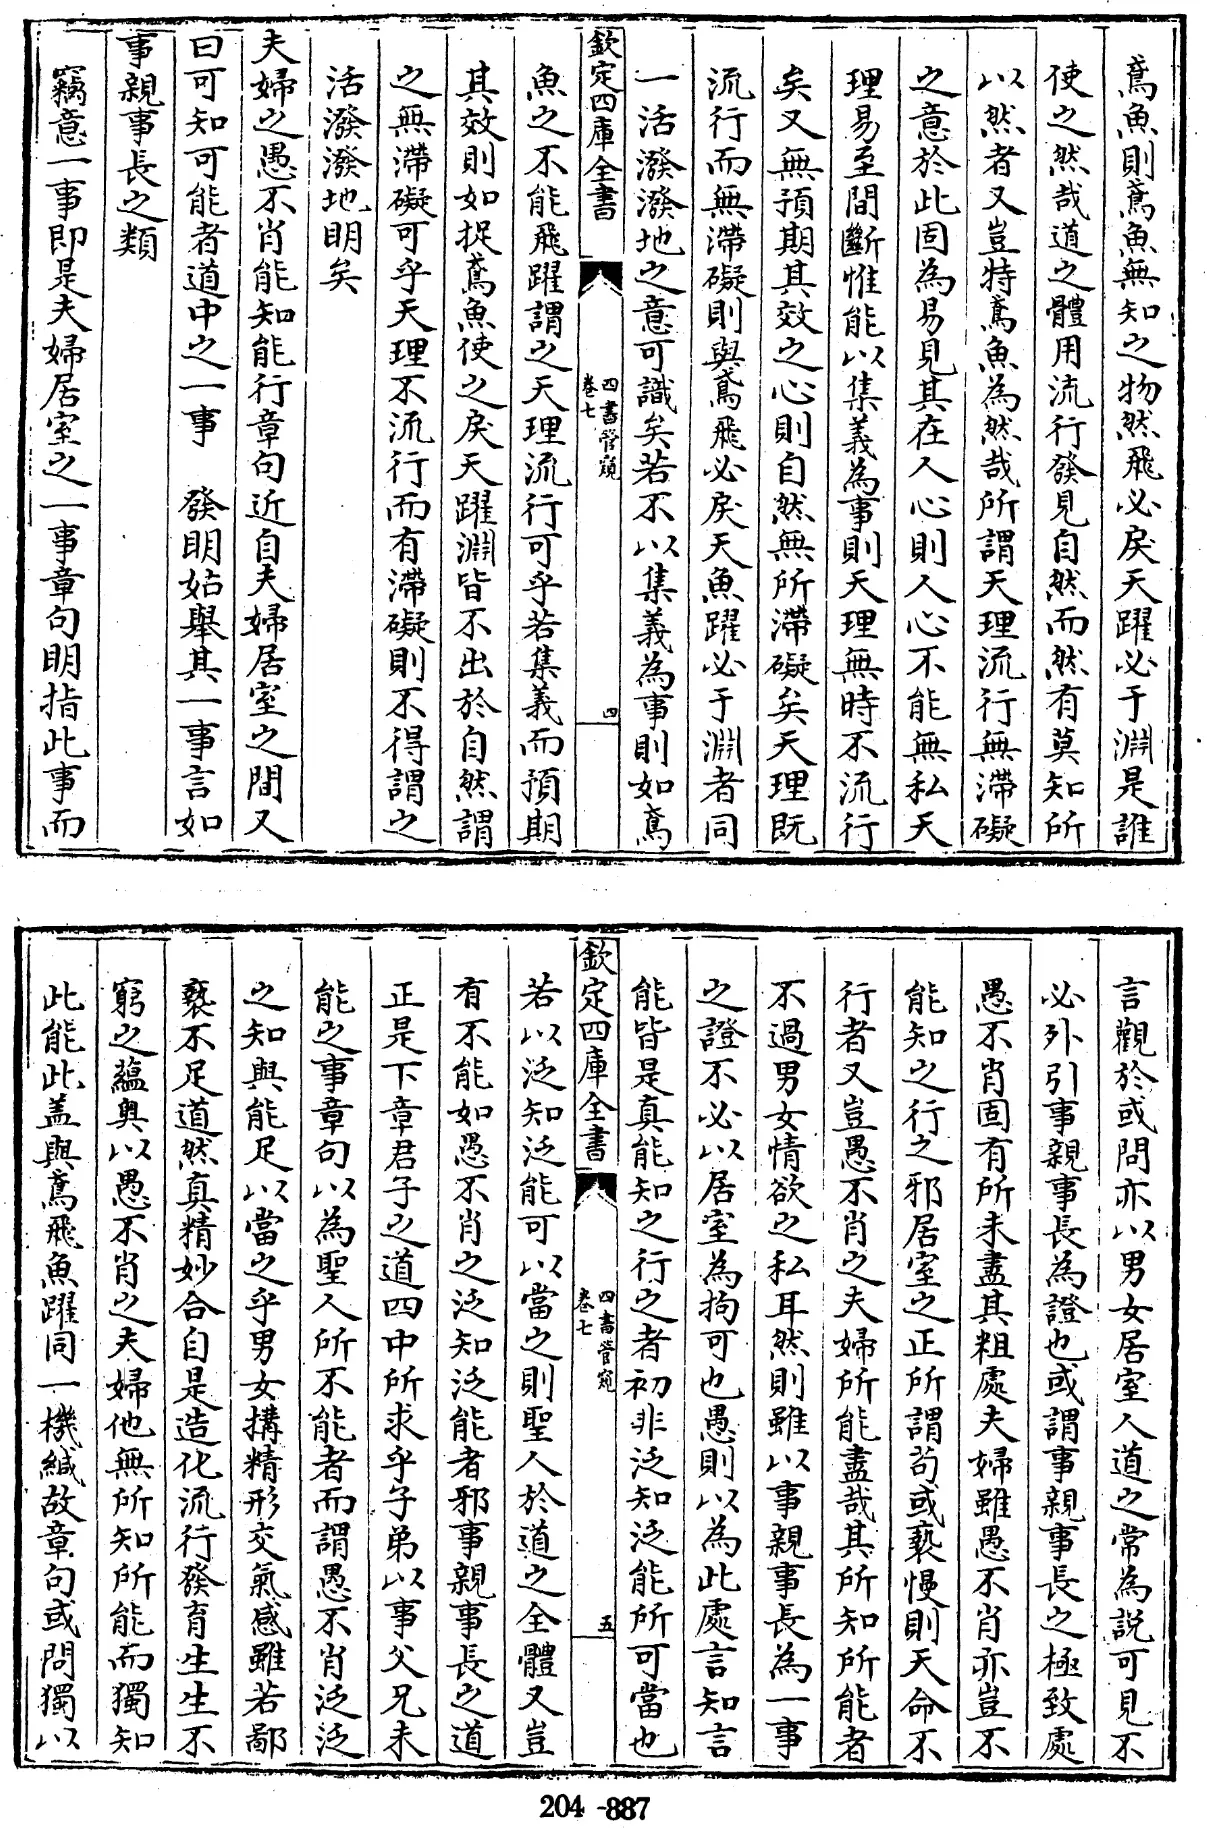 鳶魚則鳶魚無知之物然飛必戾天躍必于淵是誰
使之然哉道之體用流行發見自然而然有莫知所
以然者又豈特鳶魚為然哉所謂天理流行無滯礙
之意於此固為易見其在人心則人心不能無私天
理易至間斷惟能以集義為事則天理無時不流行
矣又無預期其效之心則自然無所滯礙矣天理既
流行而無滯礙則與鳶飛必戾天魚躍必于淵者同
一活潑潑地之意可識矣若不以集義為事則如鳶
欽定四庫全書
四書管窺
卷七
四
魚之不能飛躍謂之天理流行可乎若集義而預期
其效則如捉鳶魚使之戾天躍淵皆不出於自然謂
之無滯礙可乎天理不流行而有滯礙則不得謂之
活潑潑地明矣
夫婦之愚不肖能知能行章句近自夫婦居室之間又
曰可知可能者道中之一事　發明姑舉其一事言如
事親事長之類
竊意一事即是夫婦居室之一事章句明指此事而
言觀於或問亦以男女居室人道之常為說可見不
必外引事親事長為證也或謂事親事長之極致處
愚不肖固有所未盡其粗處夫婦雖愚不肖亦豈不
能知之行之邪居室之正所謂苟或褻慢則天命不
行者又豈愚不肖之夫婦所能盡哉其所知所能者
不過男女情欲之私耳然則雖以事親事長為一事
之證不必以居室為拘可也愚則以為此處言知言
能皆是真能知之行之者初非泛知泛能所可當也
欽定四庫全書
四書管窺
卷七
五
若以泛知泛能可以當之則聖人於道之全體又豈
有不能如愚不肖之泛知泛能者邪事親事長之道
正是下章君子之道四中所求乎子弟以事父兄未
能之事章句以為聖人所不能者而謂愚不肖泛泛
之知與能足以當之乎男女搆精形交氣感雖若鄙
褻不足道然真精妙合自是造化流行發育生生不
窮之蘊奥以愚不肖之夫婦他無所知所能而獨知
此能此盖與鳶飛魚躍同一機緘故章句或問獨以
204-887